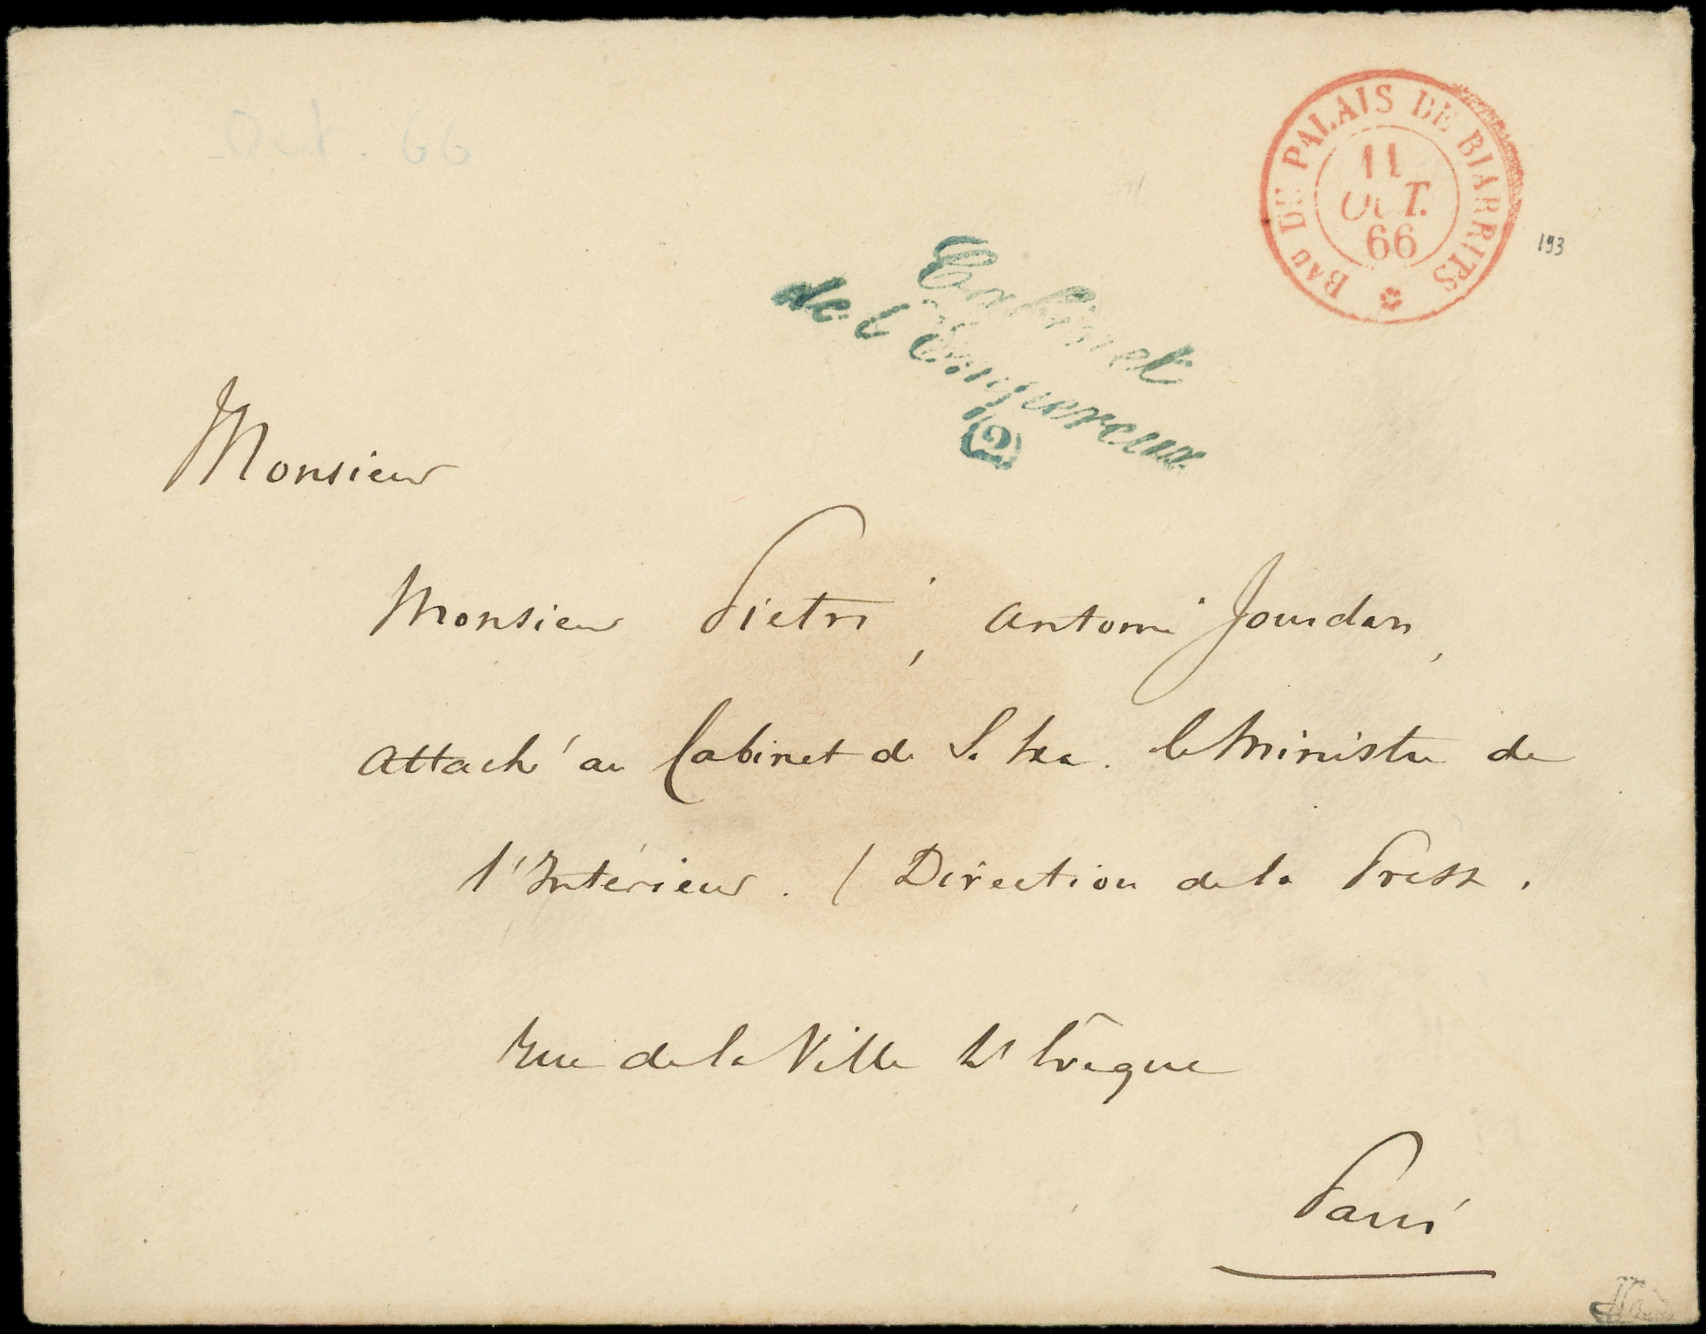 Oct. 66
BAU DE PALAIS DE BIARRITS
11
OCT.
66
193
Cabinet
de l'Empereur
(2)
Monsieur
Monsieur Pietri, Antoni Jourdan,
attaché au Cabinet de S. Exc. le Ministre de
l'Intérieur. / Direction de la Presse.
Rue de la Ville l'Evêque
Paris